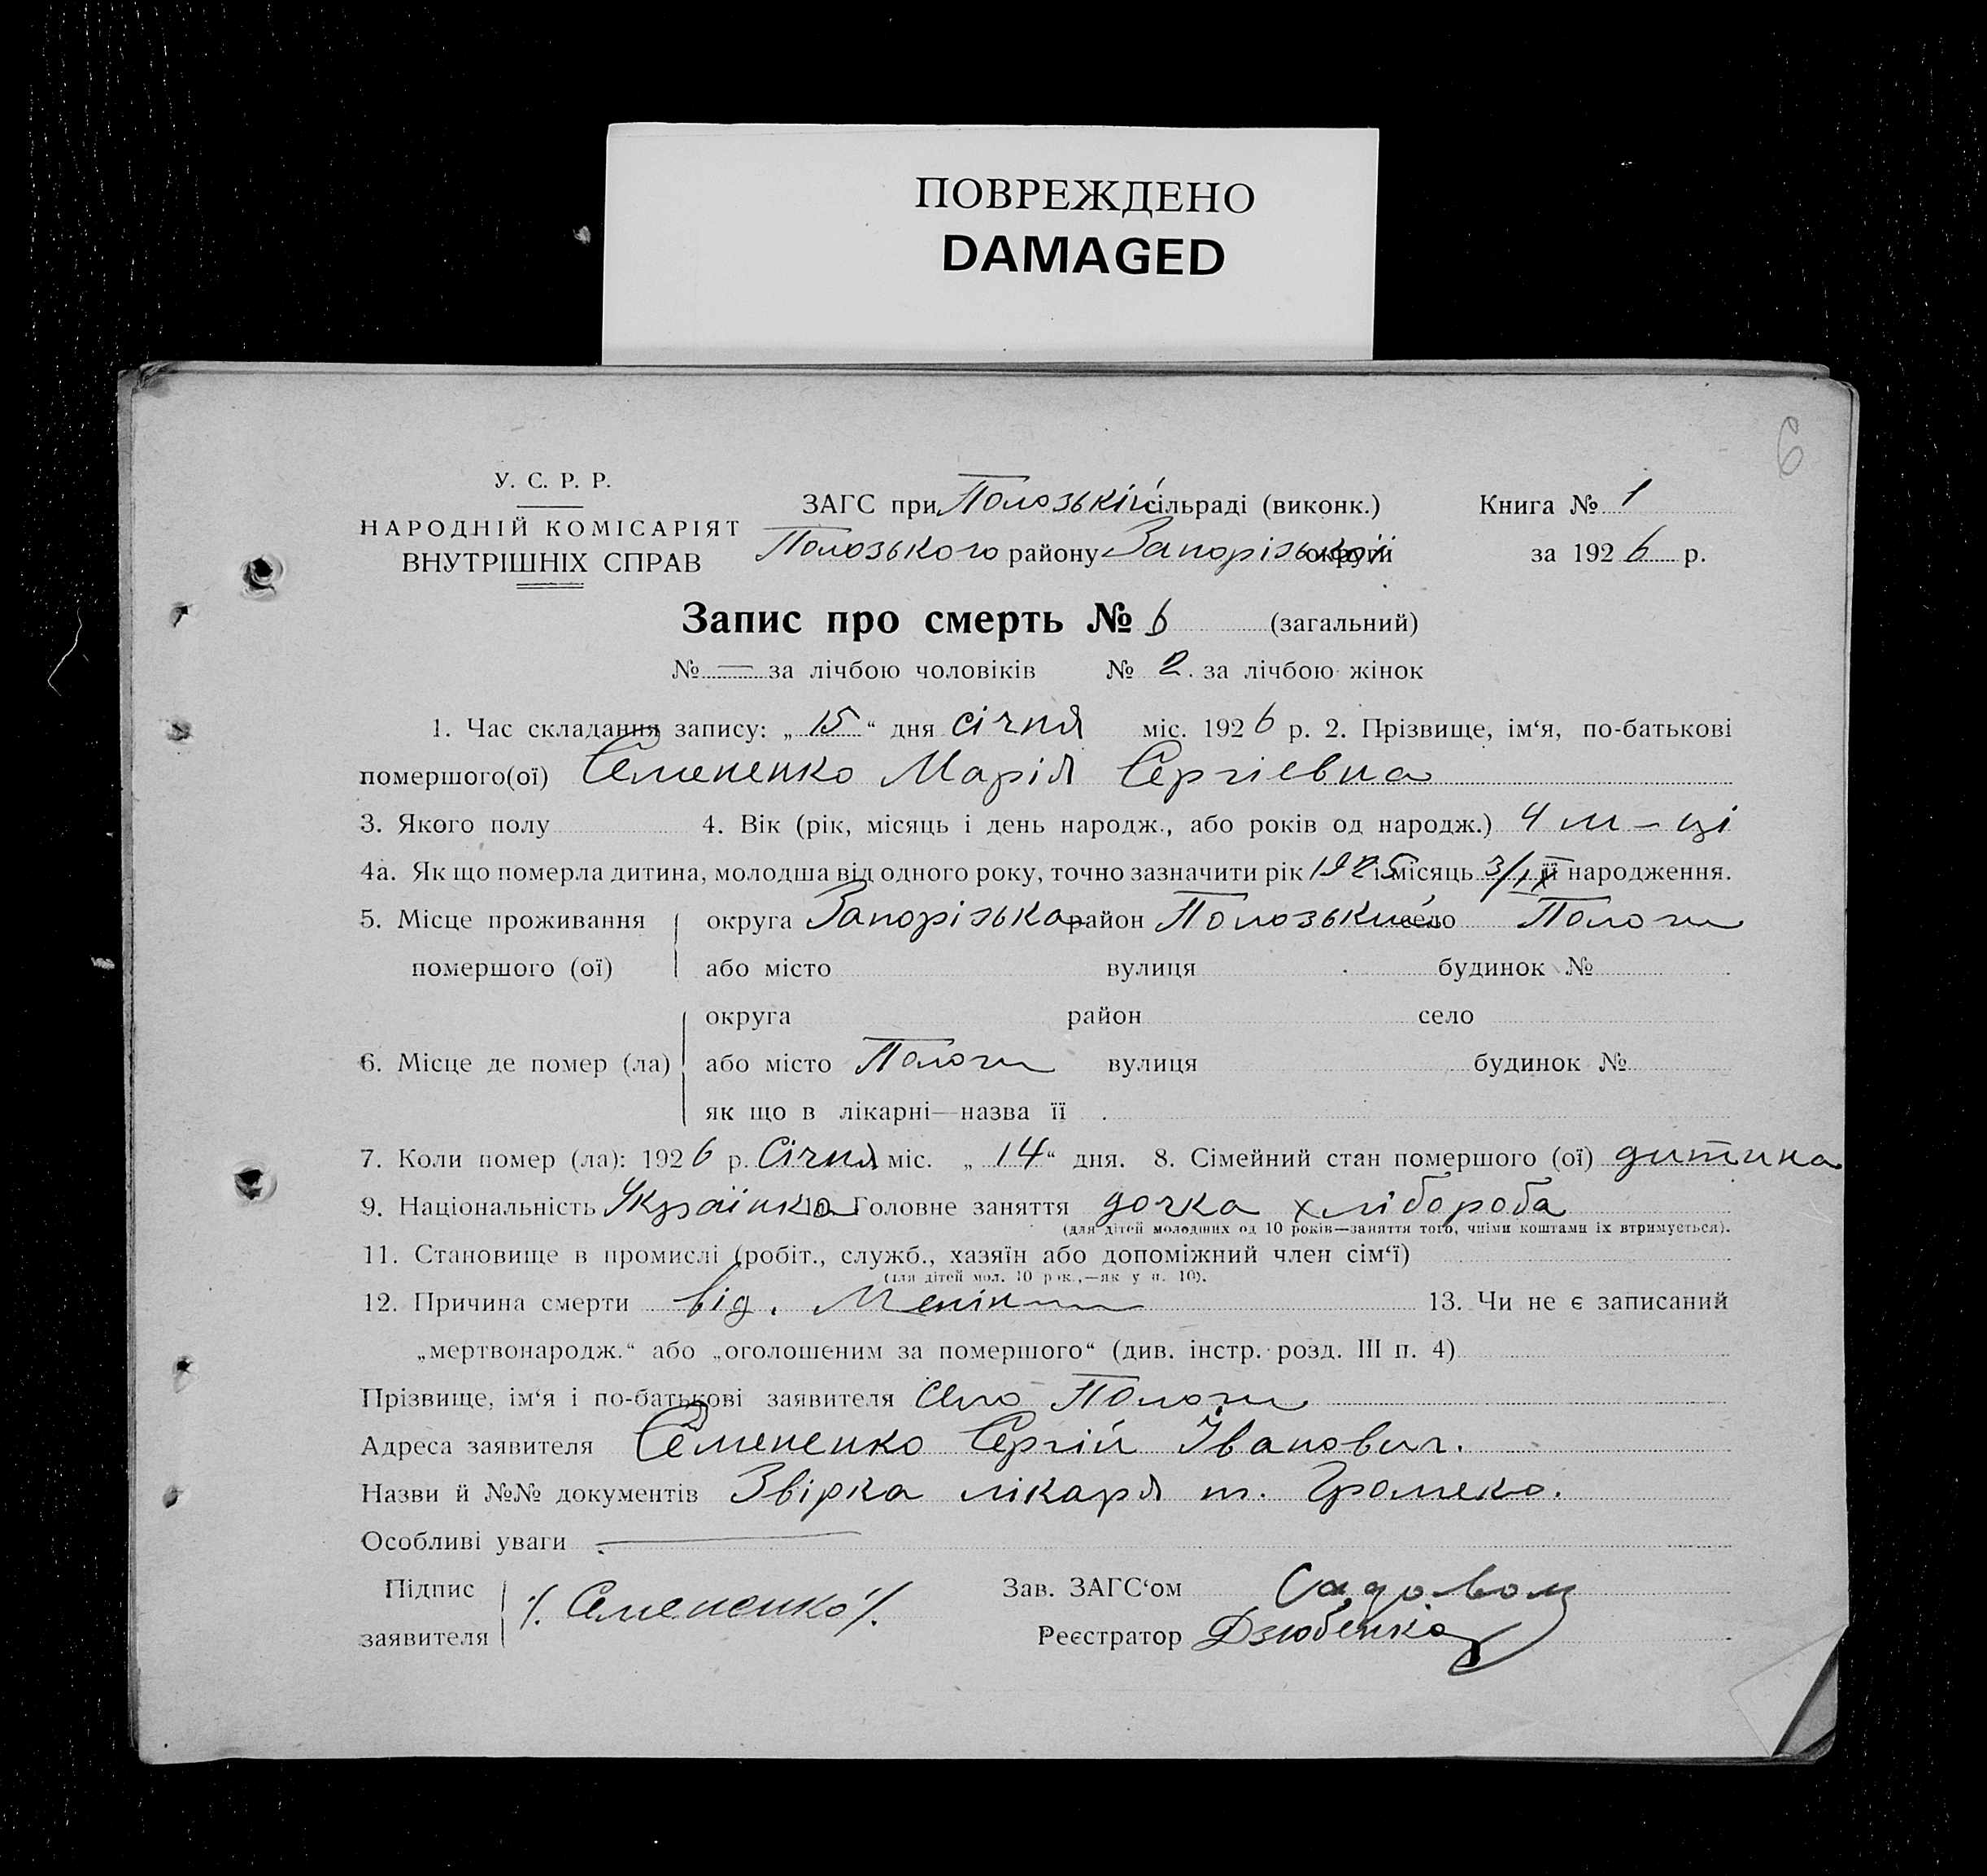 ПОВРЕЖДЕНО
DAMAGED
6
У. С. Р. Р.
НАРОДНІЙ КОМІСАРІЯТ
ВНУТРІШНІХ СПРАВ
ЗАГС при Полозькій сільраді (виконк.)
Полозького району Запорізької округи
Книга № 1
за 1926 р.
Запис про смерть № 6 (загальний)
№ — за лічбою чоловіків № 2. за лічбою жінок
1. Час складання запису: „15“ дня січня міс. 1926 р. 2. Прізвище, ім‘я, по-батькові
помершого(ої) Семененко Марія Сергієвна
3. Якого полу 4. Вік (рік, місяць і день народж., або років од народж.) 4 м-ці
4а. Як що померла дитина, молодша від одного року, точно зазначити рік 1925 і місяць 3/IX її народження.
5. Місце проживання помершого (ої) округа Запорізька район Полозький село Пологи
або місто вулиця будинок №
округа район село
6. Місце де помер (ла) або місто Пологи вулиця будинок №
як що в лікарні—назва її
7. Коли помер (ла): 1926 р. Січня міс. „14“ дня. 8. Сімейний стан помершого (ої) дитина
9. Національність Українка 10. Головне заняття дочка хлібороба
(для дітей молодших од 10 років—заняття того, чиїми коштами їх втримується).
11. Становище в промислі (робіт., служб., хазяїн або допоміжний член сім‘ї)
(для дітей мол. 10 рок.,—як у п. 10).
12. Причина смерти від. 13. Чи не є записаний
„мертвонародж.“ або „оголошеним за помершого“ (див. інстр. розд. III п. 4)
Прізвище, ім‘я і по-батькові заявителя Село Пологи
Адреса заявителя Семененко Сергій Іванович.
Назви й №№ документів Звірка лікаря т. Громеко.
Особливі уваги —
Підпис заявителя /. Семененко /.
Зав. ЗАГС‘ом
Реєстратор Дзюбенко